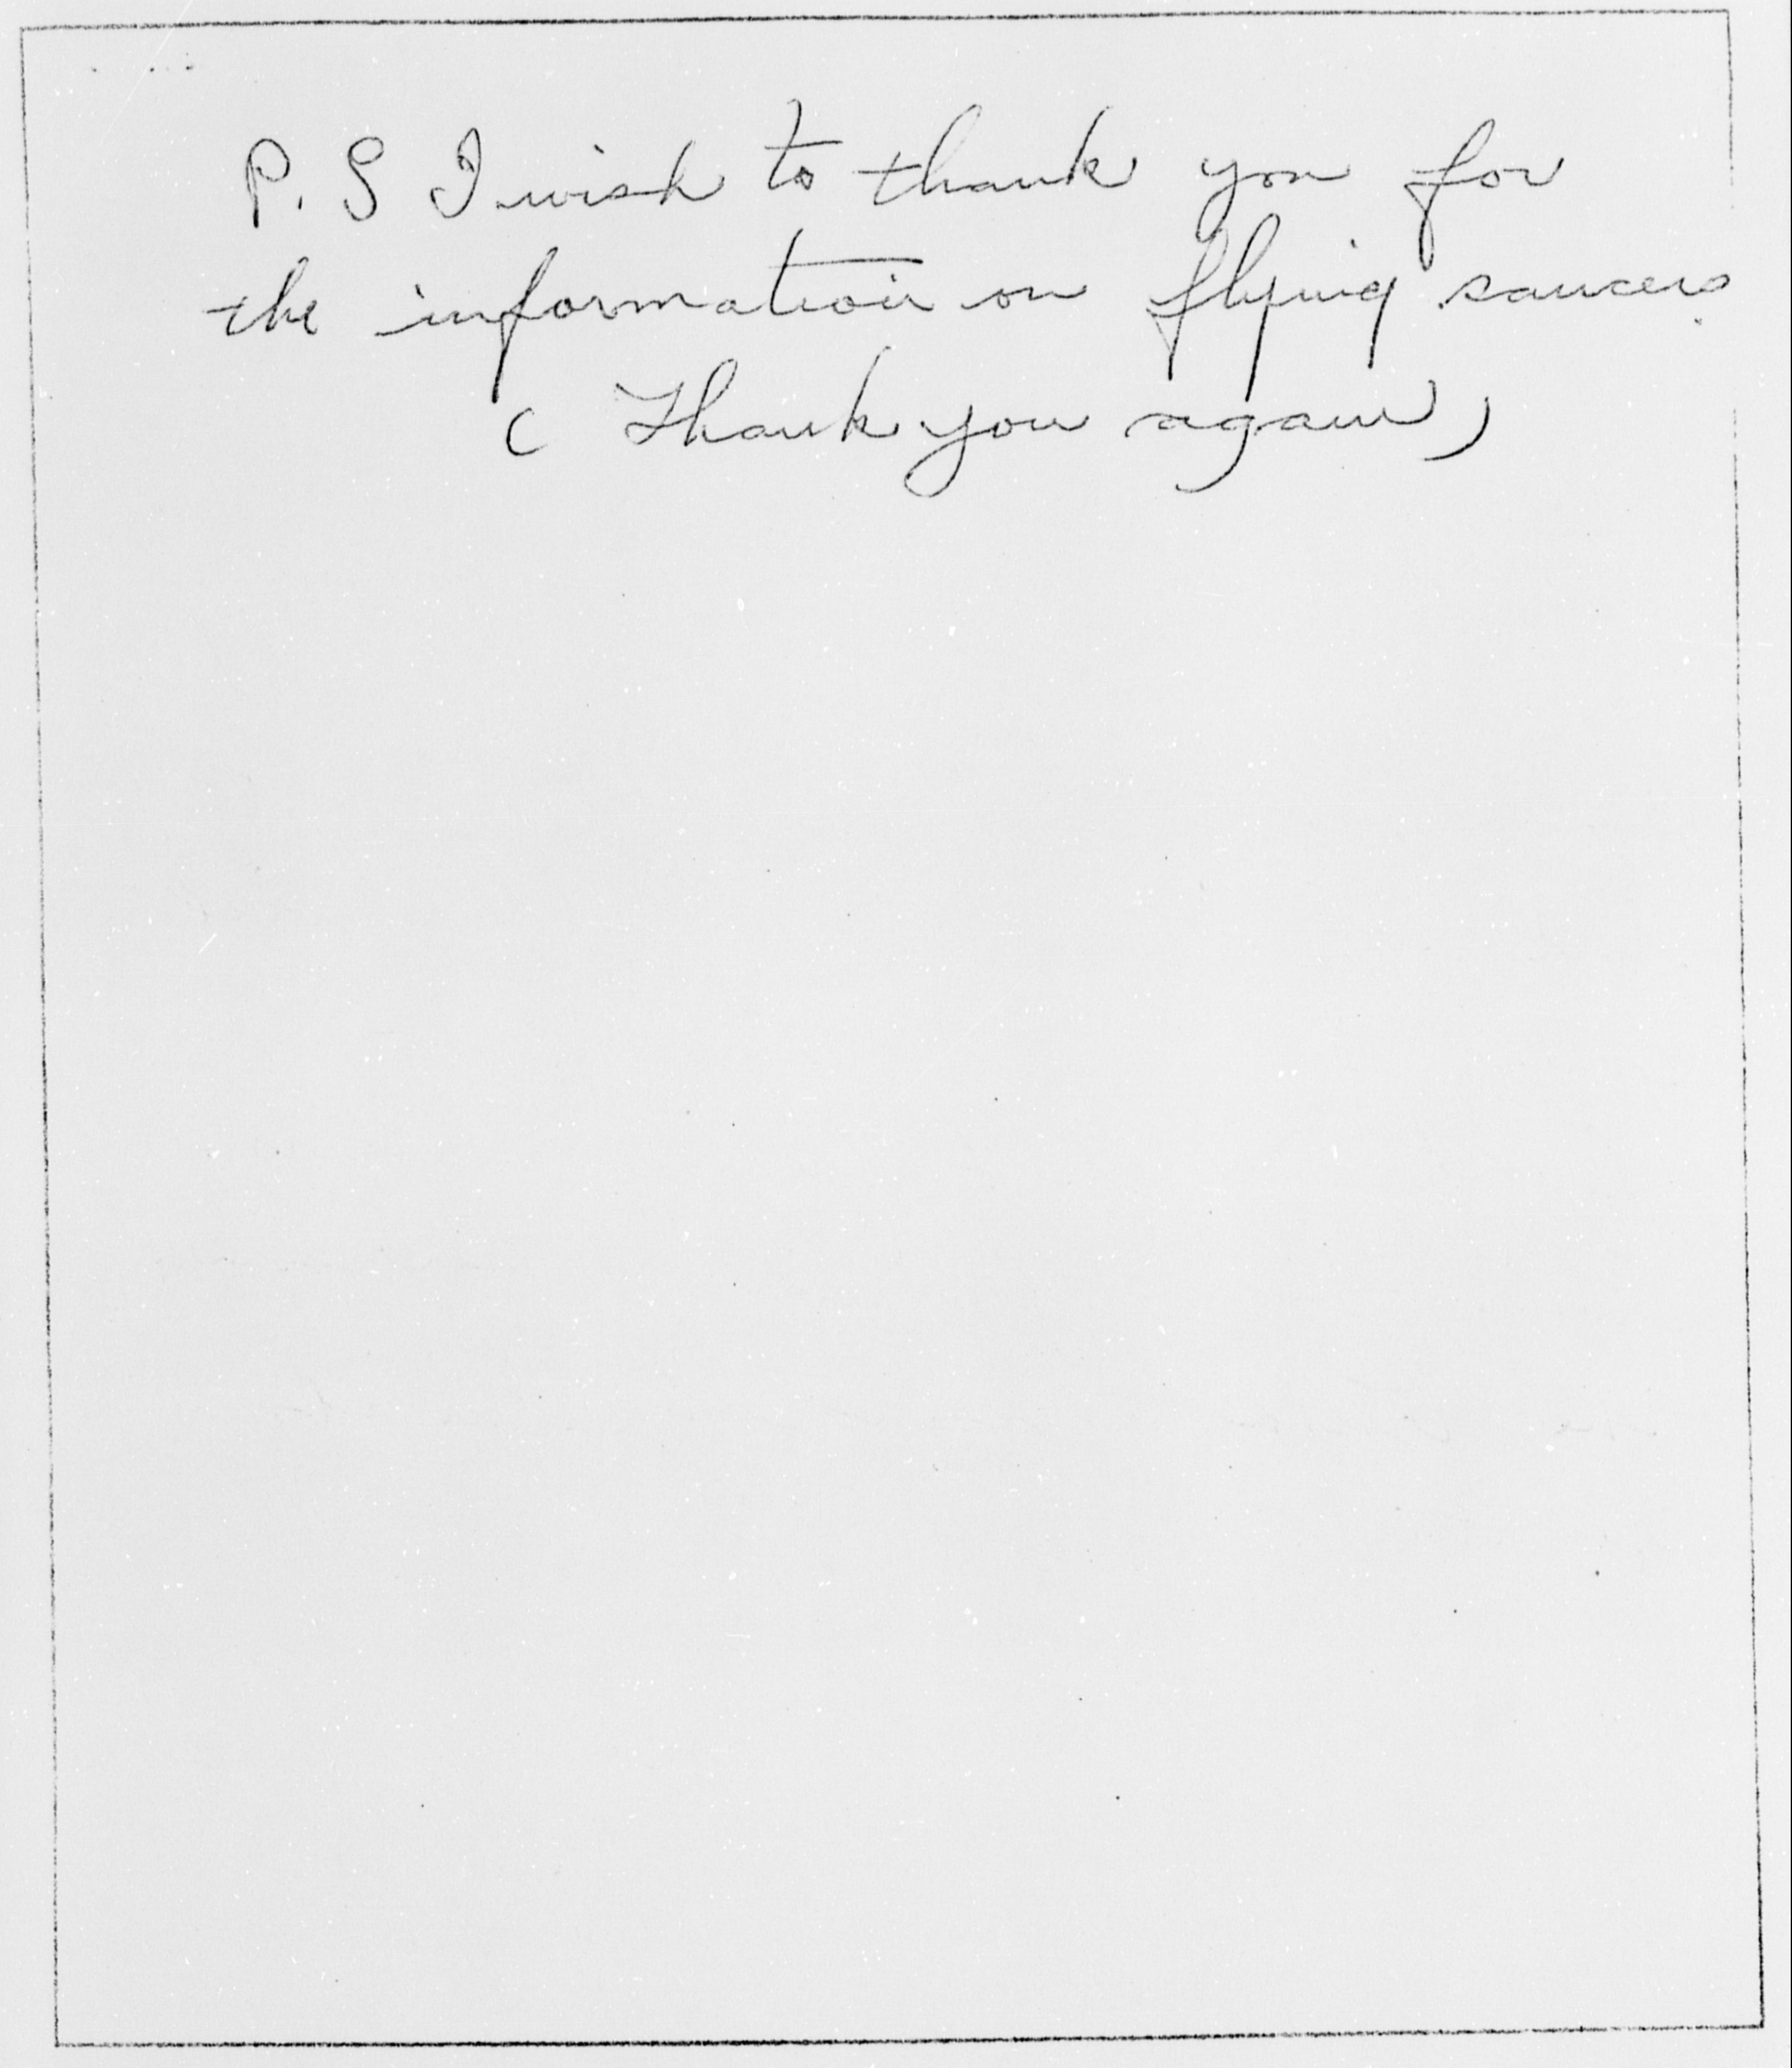 P. S I wish to thank you for
the information on flying saucers.
( Thank you again )